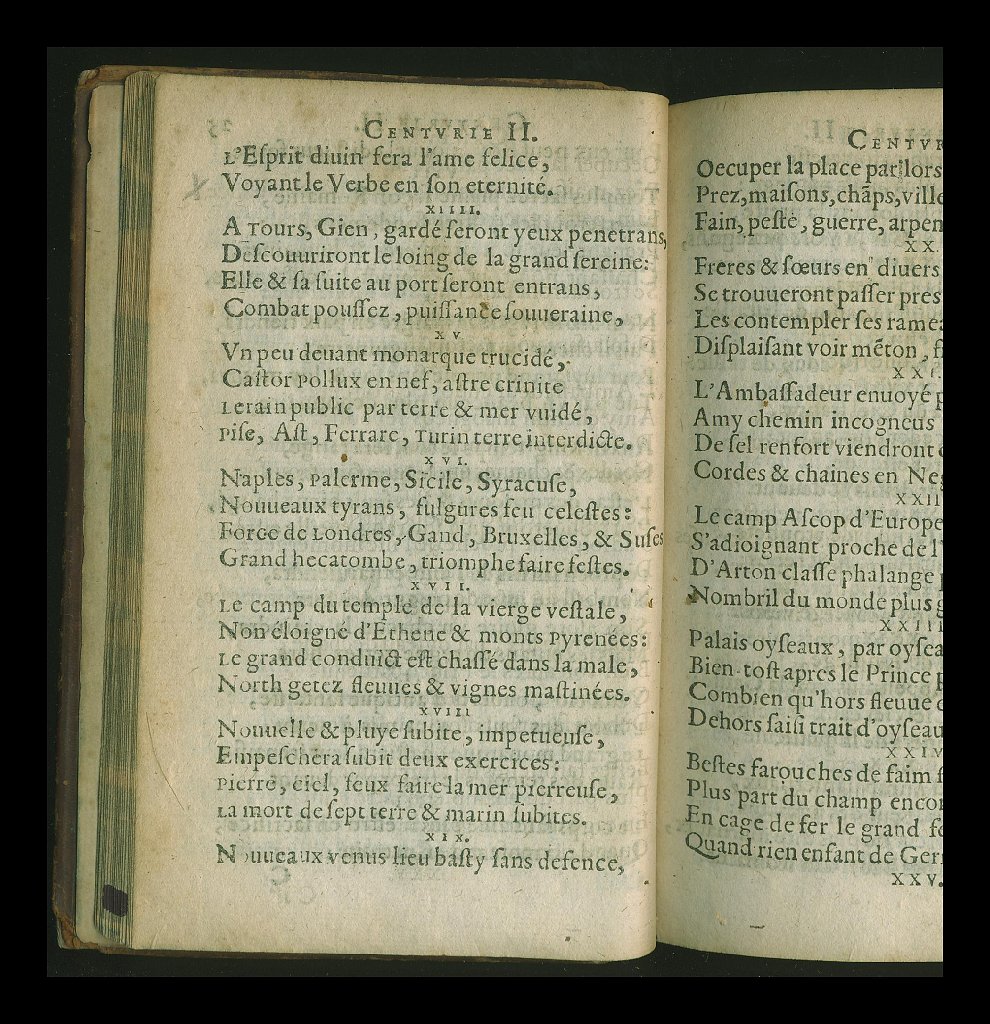 CENTVRIE II.
L'Eſprit diuin fera l'ame felice,
Voyant le Verbe en ſon eternité.
XIIII.
A Tours, Gien, gardé ſeront yeux penetrans,
Deſcouuriront le loing de la grand ſereine:
Elle & ſa ſuite au port ſeront entrans,
Combat pouſſez, puiſſance ſouueraine,
XV
Vn peu deuant monarque trucidé,
Caſtor Pollux en nef, aſtre crinite
Lerain public par terre & mer vuidé,
Piſe, Aſt, Ferrare, Turin terre interdicte.
XVI.
Naples, Palerme, Sicile, Syracuſe,
Nouueaux tyrans, fulgures feu celeſtes:
Force de Londres, Gand, Bruxelles, & Suſes
Grand hecatombe, triomphe faire feſtes.
XVII.
Le camp du temple de la vierge veſtale,
Non éloigné d'Ethene & monts Pyrenées:
Le grand conduict eſt chaſſé dans la male,
North getez fleuues & vignes maſtinées.
XVIII
Nouuelle & pluye ſubite, impetueuſe,
Empeſchera ſubit deux exercices:
Pierre, ciel, feux faire la mer pierreuſe,
La mort de ſept terre & marin ſubites.
XIX.
Nouueaux venus lieu baſty ſans defence,
CENTVR
Oecuper la place par lors
Prez, maiſons, chãps, ville
Fain, peſte, guerre, arpen
XX.
Freres & ſœurs en diuers
Se trouueront paſſer pres
Les contempler ſes ramea
Diſplaiſant voir mẽton, f
XXI
L'Ambaſſadeur enuoyé p
Amy chemin incogneus
De ſel renfort viendront
Cordes & chaines en Neg
XXII
Le camp Aſcop d'Europe
S'adioignant proche de l'
D'Arton claſſe phalange
Nombril du monde plus g
XXIII
Palais oyſeaux, par oyſea
Bien-toſt apres le Prince p
Combien qu'hors fleuue
Dehors ſaiſi trait d'oyſeau
XXIV
Beſtes farouches de faim f
Plus part du champ encor
En cage de fer le grand fe
Quand rien enfant de Ger
XXV.